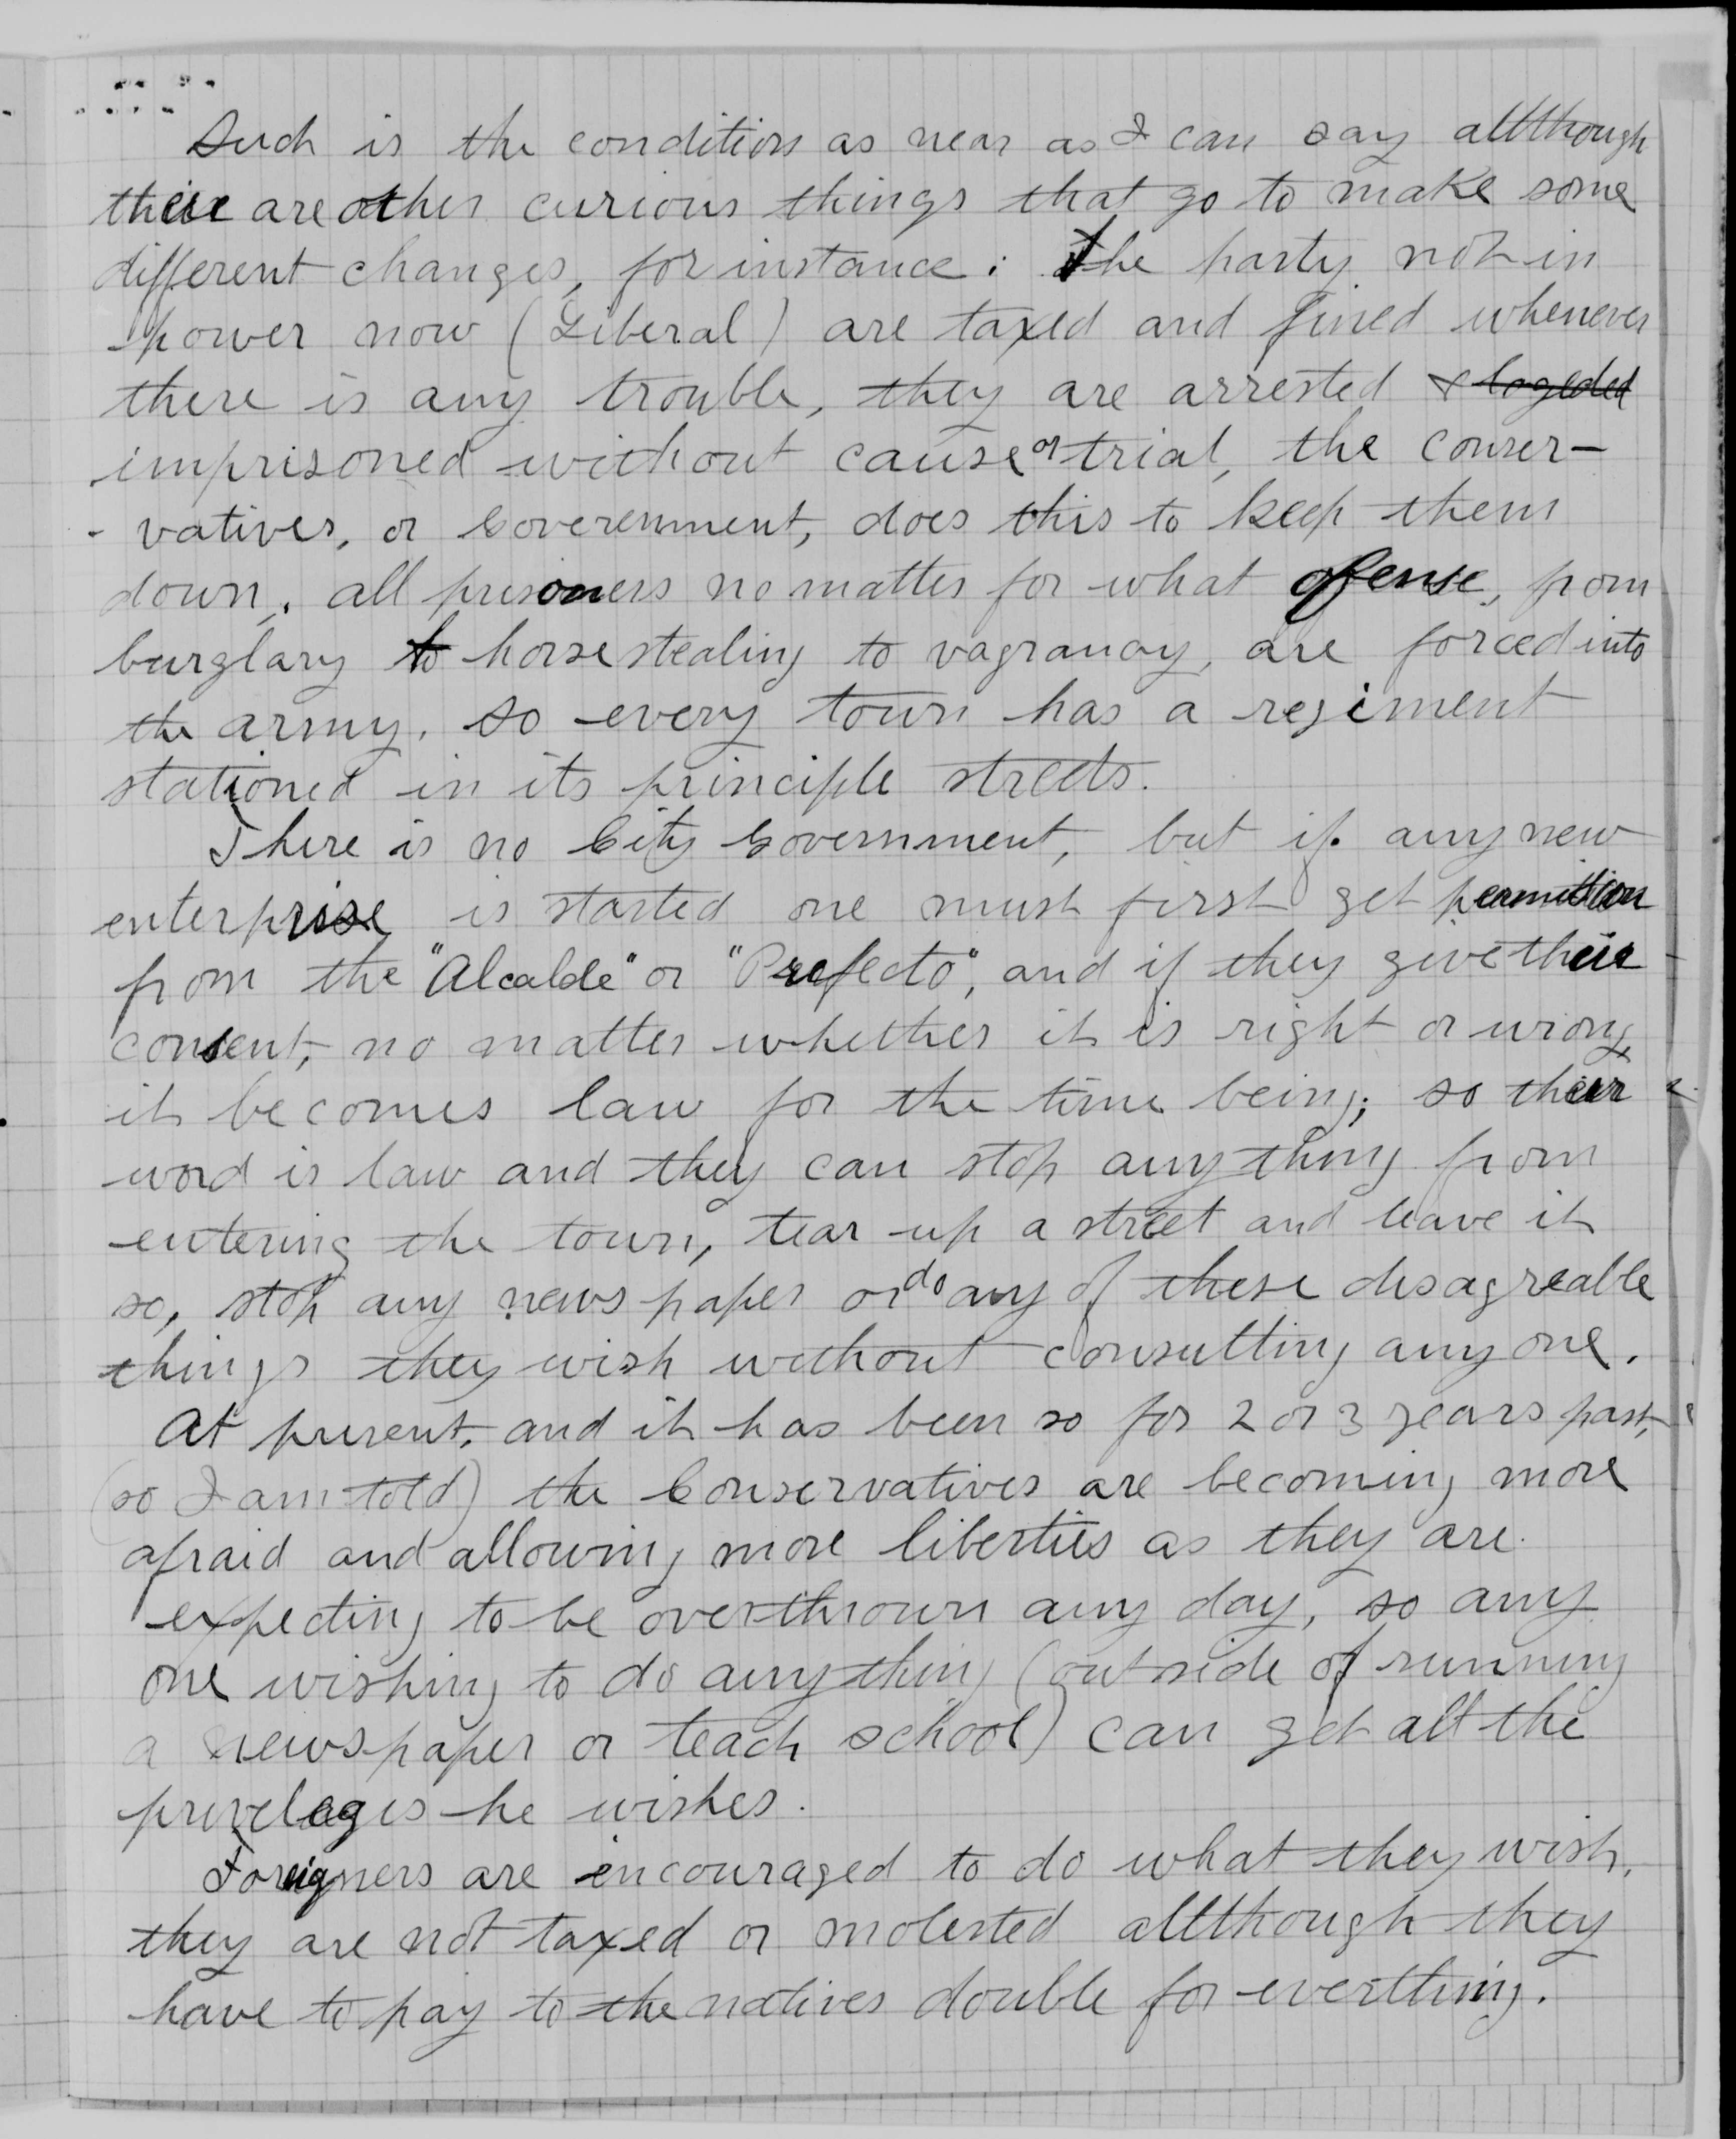 Such is the condition as near as I can say allthough
their are other curious things that go to make some
different changes, for instance: The party not in
power now (Liberal) are taxed and fined whenever
there is any trouble, they are arrested &
imprisoned without cause or trial, the conser-
- vatives, or Goverenment, does this to keep them
down. all prisoners no matter for what offense, from
burglary to horse stealing to vagrancy, are forced into
the army. so every town has a regiment
stationed in its principle streets.
There is no City Government, but if any new
enterprise is started one must first get permittion
from the "Alcalde" or "Prefecto", and if they give their
consent, no matter whether it is right or wrong
it becomes law for the time being; so their
word is law and they can stop any thing from
entering the town, tear up a street and leave it
so, stop any news paper or do any of these disagreable
things they wish without consulting any one.
At present, and it has been so for 2 or 3 years past,
(so I am told) the Conservatives are becoming more
afraid and allowing more liberties as they are
expecting to be overthrown any day, so any
one wishing to do anything (outside of running
a newspaper or teach school) can get all the
priveleges he wishes.
Foreigners are encouraged to do what they wish,
they are not taxed or molested allthough they
have to pay to the natives double for everthing.